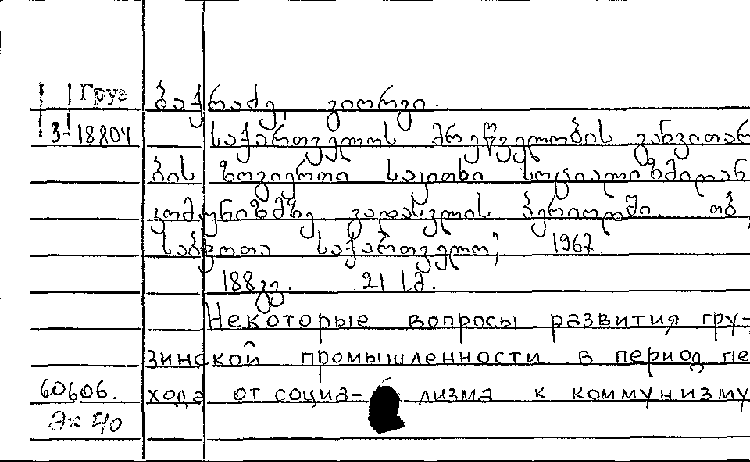 Груз ბაქრაძე, გიორგი.
3-18804 საქართველოს მრეწველობის განვითარ
ბის ზოგიერთი საკითხი სოციალიზმიდან
კომუნიზმზე გადასვლის პერიოდში თბ,
საბჭოთა საქართველო, 1967
188გვ. 21 სმ.
Некоторые вопросы развития гру-
зинской промышленности в период пе
60606. хода от социа- лизма к коммунизму
Эк 5/0